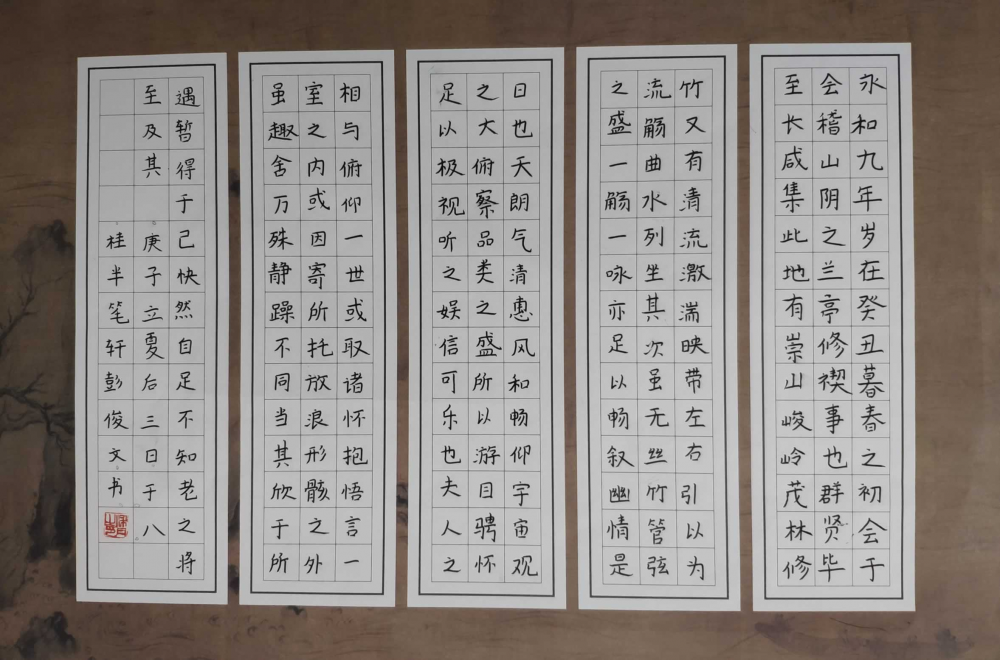 永和九年岁在癸丑暮春之初会于
会稽山阴之兰亭修禊事也群贤毕
至长咸集此地有崇山峻岭茂林修
竹又有清流激湍映带左右引以为
流觞曲水列坐其次虽无丝竹管弦
之盛一觞一咏亦足以畅叙幽情是
日也天朗气清惠风和畅仰宇宙观
之大俯察品类之盛所以游目骋怀
足以极视听之娱信可乐也夫人之
相与俯仰一世或取诸怀抱悟言一
室之内或因寄所托放浪形骸之外
虽趣舍万殊静躁不同当其欣于所
遇暂得于己快然自足不知老之将
至及其 庚子立夏后三日于八
桂半笔轩彭俊文书